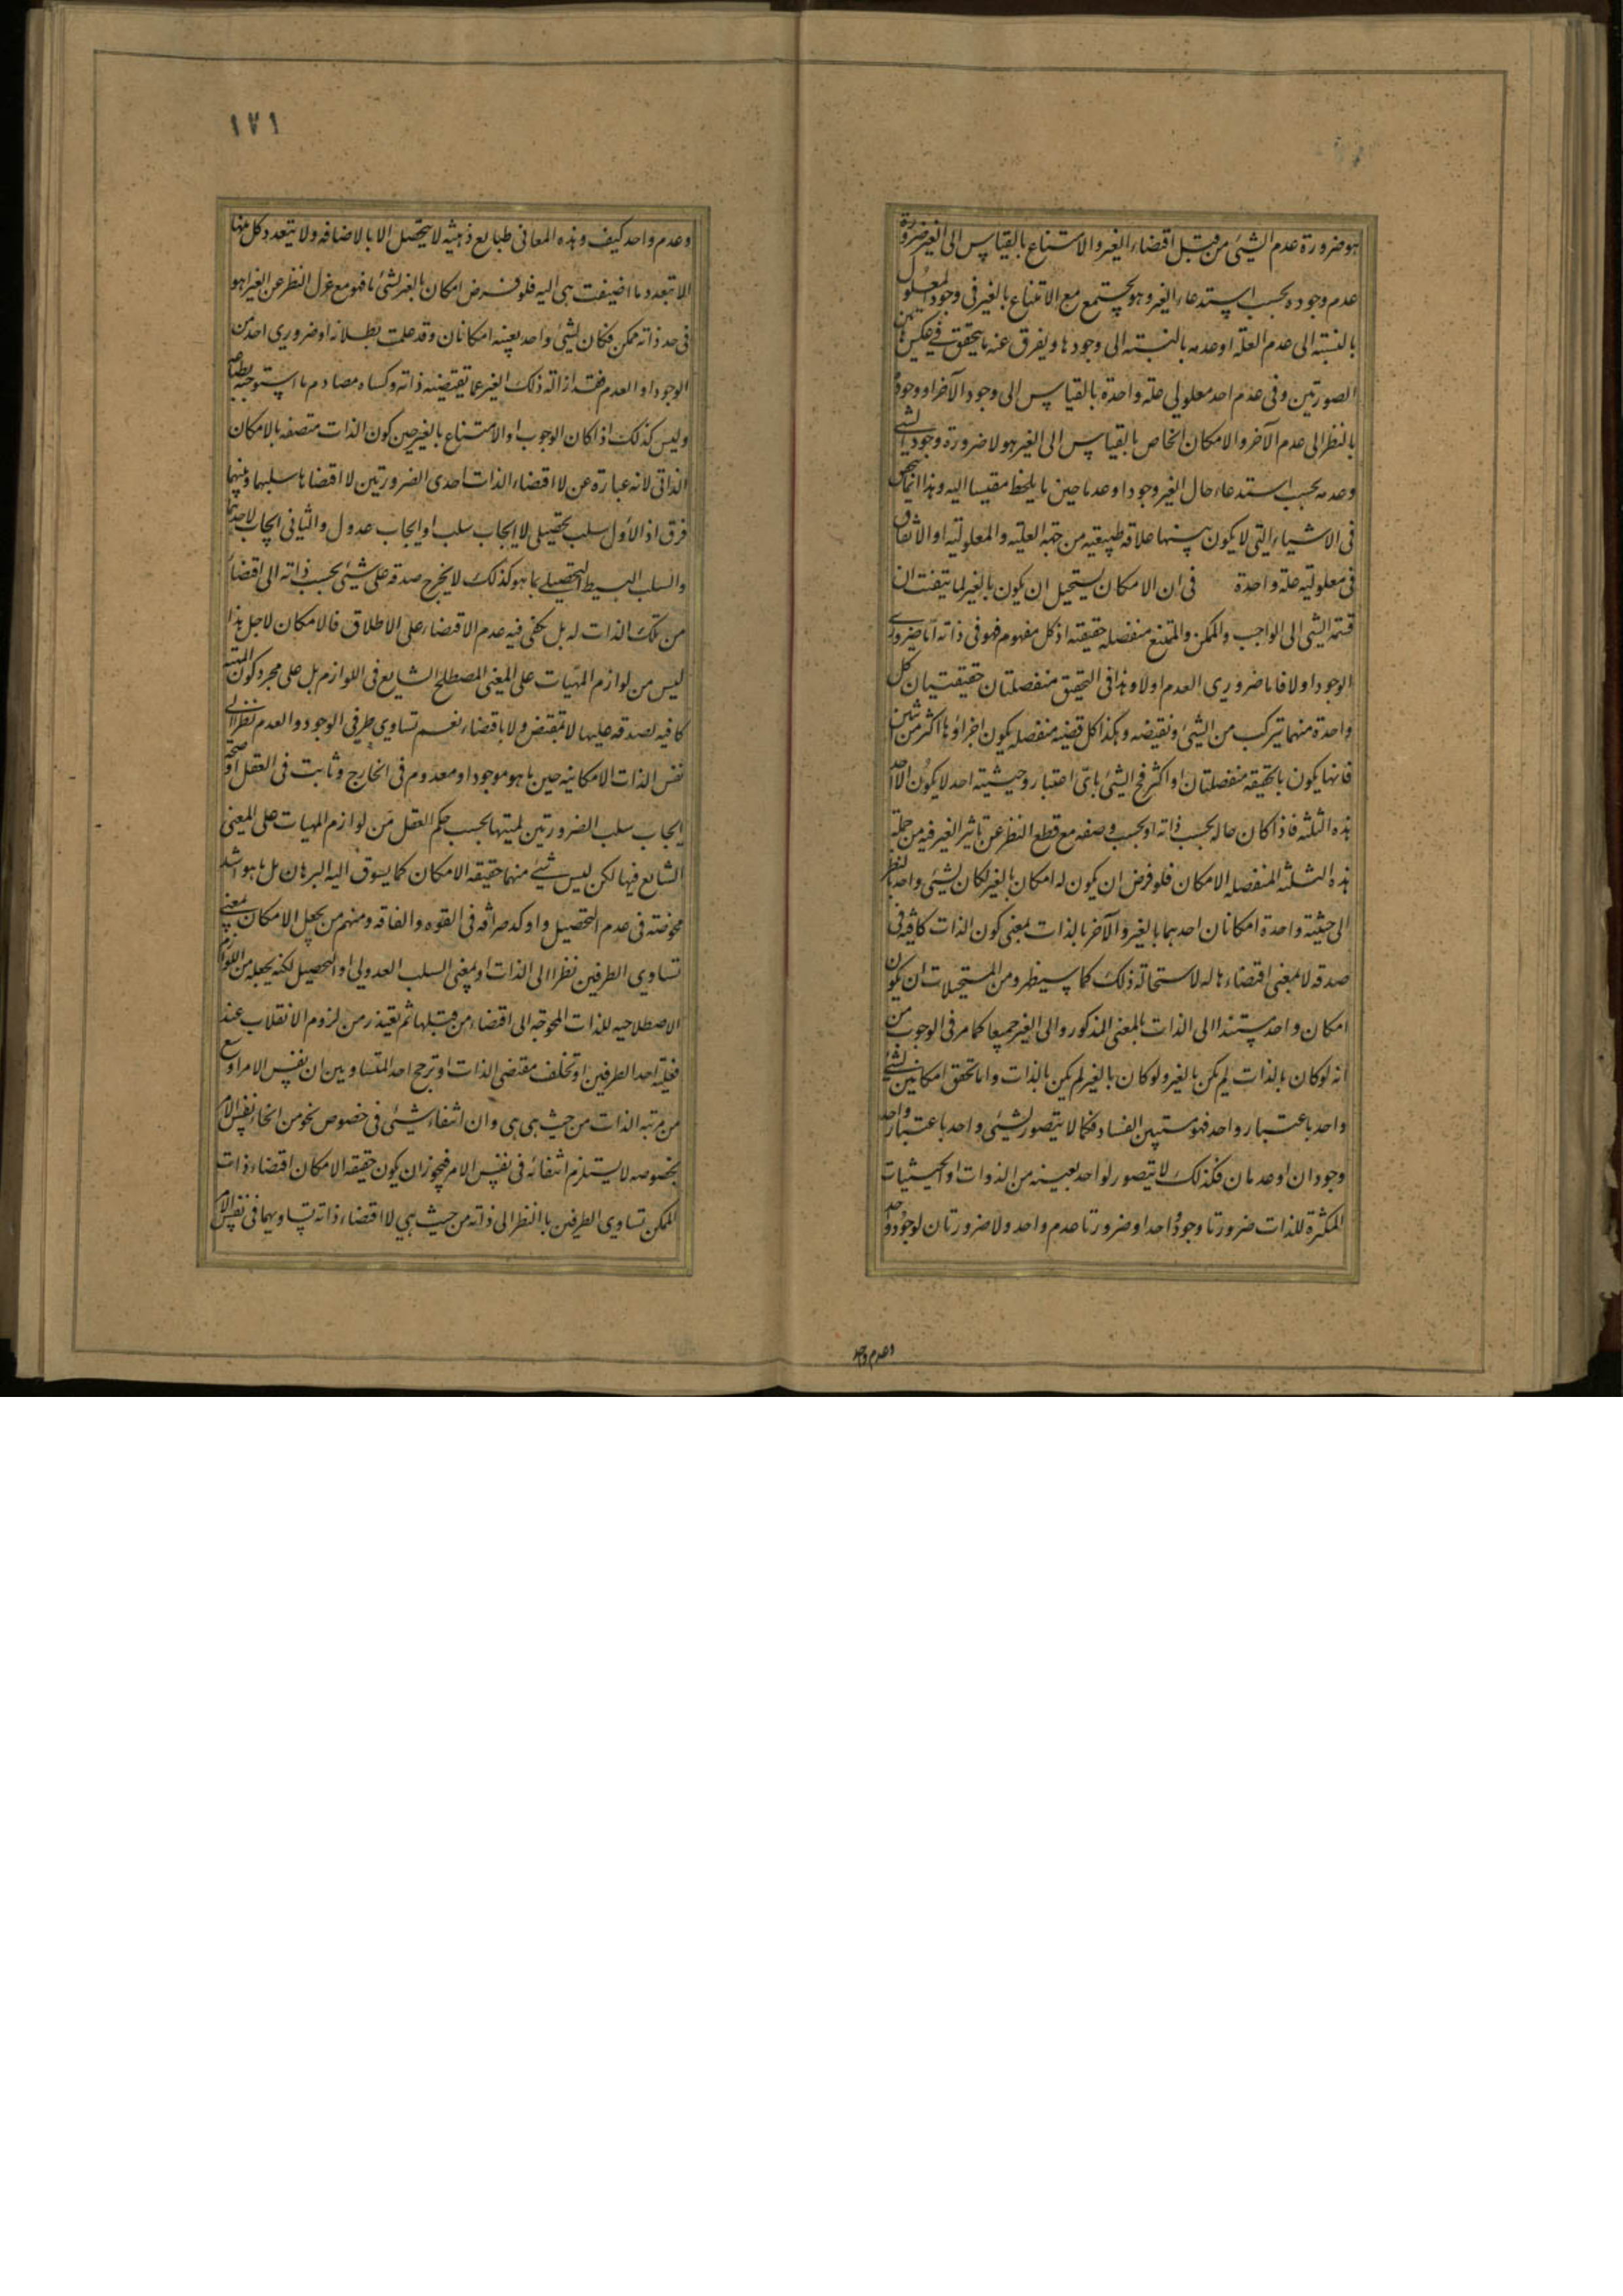 هو ضرورة عدم الشیئ من قبل اقتضاء الغیر والامتناع بالقیاس الی الغیر ضرورة
عدم وجوده بحسب استدعاء الغیر وهو یجتمع مع الامتناع بالغیر فی وجود المعلول
بالنسبته الی عدم العلة او عدمه بالنسبته الی وجودها ویفرق عنه بما یتحقق فی عکس هاتین
الصورتین وفی عدم احد معلولی علة واحدة بالقیاس الی وجود الآخر او وجوده
بالنظر الی عدم الآخر والامکان الخاص بالقیاس الی الغیر هو لا ضرورة وجود الشئ
وعدمه بحسب استدعاء حال الغیر وجودا وعدما حین ما یلحظ مقیسا الیه وهذا انما یتحقق
فی الاشیاء التی لا یکون بینها علاقة طبیعیه من جهة العلیته والمعلولیه او الاتفاق
فی معلولیه علة واحدة فی ان الامکان یستحیل ان یکون بالغیر لما یتفنت ان
قسمة الشئ الی الواجب والممکن والممتنع منفصله حقیقته اذ کل مفهوم فهو فی ذاته اما ضروری
الوجود اولا فاما ضروری العدم اولا وهذا فی التحقیق منفصلتان حقیقتیان کل
واحدة منهما تترکب من الشیئ ونقیضه وهکذا کل قضیه منفصله یکون اجزاؤها اکثر من شیئین
فانها یکون بالحقیقه منفصلتان او اکثر فح الشیئ بای اعتبار وحیثیته احد لا یکون الا احد
هذه الثلثه فاذا کان حاله بحسب ذاته او بحسب وصفه مع قطع النظر عن تاثیر الغیر فیه من جملة
هذه الثلثه المنفصله الامکان فلو فرض ان یکون له امکان بالغیر لکان لشیئ واحد بالنظر
الی حیثیته واحدة امکانان احدهما بالغیر والآخر بالذات بمعنی کون الذات کافیة فی
صدقه لا بمعنی اقتضاءها له لاستحالة ذلک کما سیظهر ومن المستحیلات ان یکون
امکان واحد مستندا الی الذات بالمعنی المذکور والی الغیر جمیعا کما مر فی الوجوب من
انه لو کان بالذات لم یکن بالغیر ولو کان بالغیر لم یکن بالذات واما تحقق امکانین لشئ
واحد باعتبار واحد فهو مستبین الفساد فکما لا یتصور لشیئ واحد باعتبار واحد
وجودان او عدمان فکذلک لا یتصور لواحد بعینه من الذوات او الحیثیات
المکثرة للذات ضرورتا وجود واحد او ضرورتا عدم واحد ولا ضرورتان لوجود واحد
وعدم واحد
۱۷۱
وعدم واحد کیف وهذه المعانی طبایع ذهنیه لا یتحصل الا بالاضافه ولا یتعدد کل منها
الا بتعدد ما اضیفت هی الیه فلو فرض امکان بالغیر لشئ ما فهو مع عزل النظر عن الغیر اهو
فی حد ذاته ممکن فکان لشیئ واحد بعینه امکانان وقد علمت بطلانه او ضروری احد من
الوجود او العدم فقد ازاله ذلک الغیر عما تقتضیه ذاته وکساه مصادم ما استوجبه بطباعه
ولیس کذلک اذا کان الوجوب او الامتناع بالغیر حین کون الذات متصفه بالامکان
الذاتی لانه عبارة عن لا اقتضاء الذات احدی الضرورتین لا اقتضاءها سلبهما وبینهما
فرق اذ الاول سلب تحصیلی لا ایجاب سلب او ایجاب عدول والثانی ایجاب لاحدهما
والسلب البسیط التحصیلی بما هو کذلک لا یخرج صدقه علی شیئ بحسب ذاته الی اقتضاء
من تلک الذات له بل تکفی فیه عدم الاقتضاء علی الاطلاق فالامکان لاجل هذا
لیس من لوازم المهیات علی المعنی المصطلح الشایع فی اللوازم بل علی مجرد کون المهیته
کافیه لصدقه علیها لا بمقتض ولا باقتضاء نعم تساوی طرفی الوجود والعدم نظرا الی
نفس الذات الامکانیه حین ما هو موجود او معدوم فی الخارج وثابت فی العقل او صحة
ایجاب سلب الضرورتین لمیتها بحسب حکم العقل من لوازم المهیات علی المعنی
الشایع فیها لکن لیس شئ منهما حقیقه الامکان کما یسوق الیه البرهان بل ما هو اشد
محوضته فی عدم التحصیل واوکد صرافه فی القوه والفاقه ومنهم من یجعل الامکان بمعنی
تساوی الطرفین نظرا الی الذات او بمعنی السلب العدولی او التحصیل لکنه یجعله من اللوازم
الاصطلاحیه للذات المحوجه الی اقتضاء من قبلها ثم یعتذر من لزوم الانقلاب عند
فعلیة احد الطرفین او تخلف مقتضی الذات او ترجح احد المتساویین ان نفس الامر اوسع
من مرتبه الذات من حیث هی هی وان انتفاء شیئ فی خصوص نحو من انحاء نفس الامر
بخصوصه لا یستلزم انتفائه فی نفس الامر فیجوز ان یکون حقیقه الامکان اقتضاء ذات
الممکن تساوی الطرفین بالنظر الی ذاته من حیث هی لا اقتضاء ذاته تساویهما فی نفس الامر